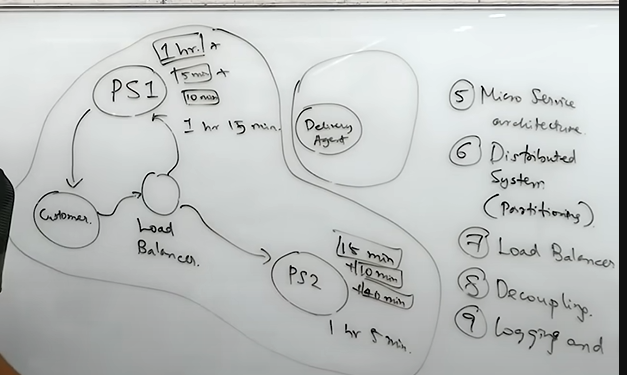 1 hr. +
15 min +
10 min
1 hr 15 min.
PS1
Delivery
Agent
Customer.
Load
Balancer.
PS2
15 min
+10 min
+40 min
1 hr 5 min.
⑤ Micro Service
architecture.
⑥ Distributed
System.
(Partitioning)
⑦ Load Balancer
⑧ Decoupling.
⑨ Logging and